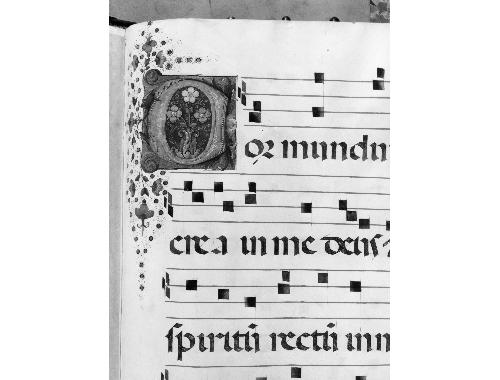 Cor mundu
crea in me deus
spiritū rectū inn